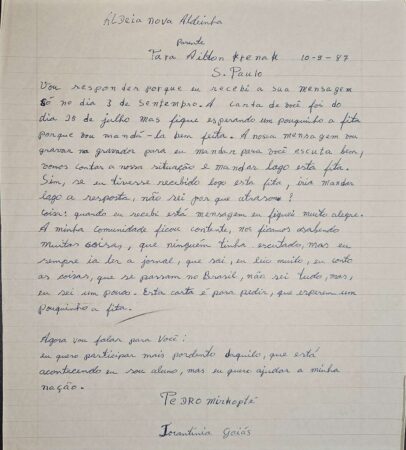 Aldeia nova Aldeinha
Parente
Para Ailton Krenak 10-9-87
S. Paulo
Vou responder porque eu recebi a sua mensagem
só no dia 3 de sentempro. A carta de você foi do
dia 28 de julho mas fique esperando um pouquinho a fita
porque vou mandá-la bem feita. A nossa mensagem vou
gravar no gravador para eu mandar para você escuta bem,
vomos contar a nossa situação e mandar logo esta fita.
Sim, se eu tivesse recebido logo esta fita, iria mandar
logo a resposta, não sei por que atrasou?
Coisa: quando eu recebi está mensagem eu fiquei muito alegre.
A minha comunidade ficou contente, nos ficamos sabendo
muitas coisas, que ninguém tinha escutado, mas eu
sempre ia ler a jornal, que sai, eu leio muito, eu conto
as coisas, que se passam no Brasil, não sei tudo, mas,
eu sei um pouco. Esta carta é para pedir, que esperem um
pouquinho a fita.
Agora vou falar para Você:
eu quero participar mais por dentro daquilo, que está
acontecendo eu sou aluno, mas eu quero ajudar a minha
nação.
PEDRO
Tocantínia Goiás